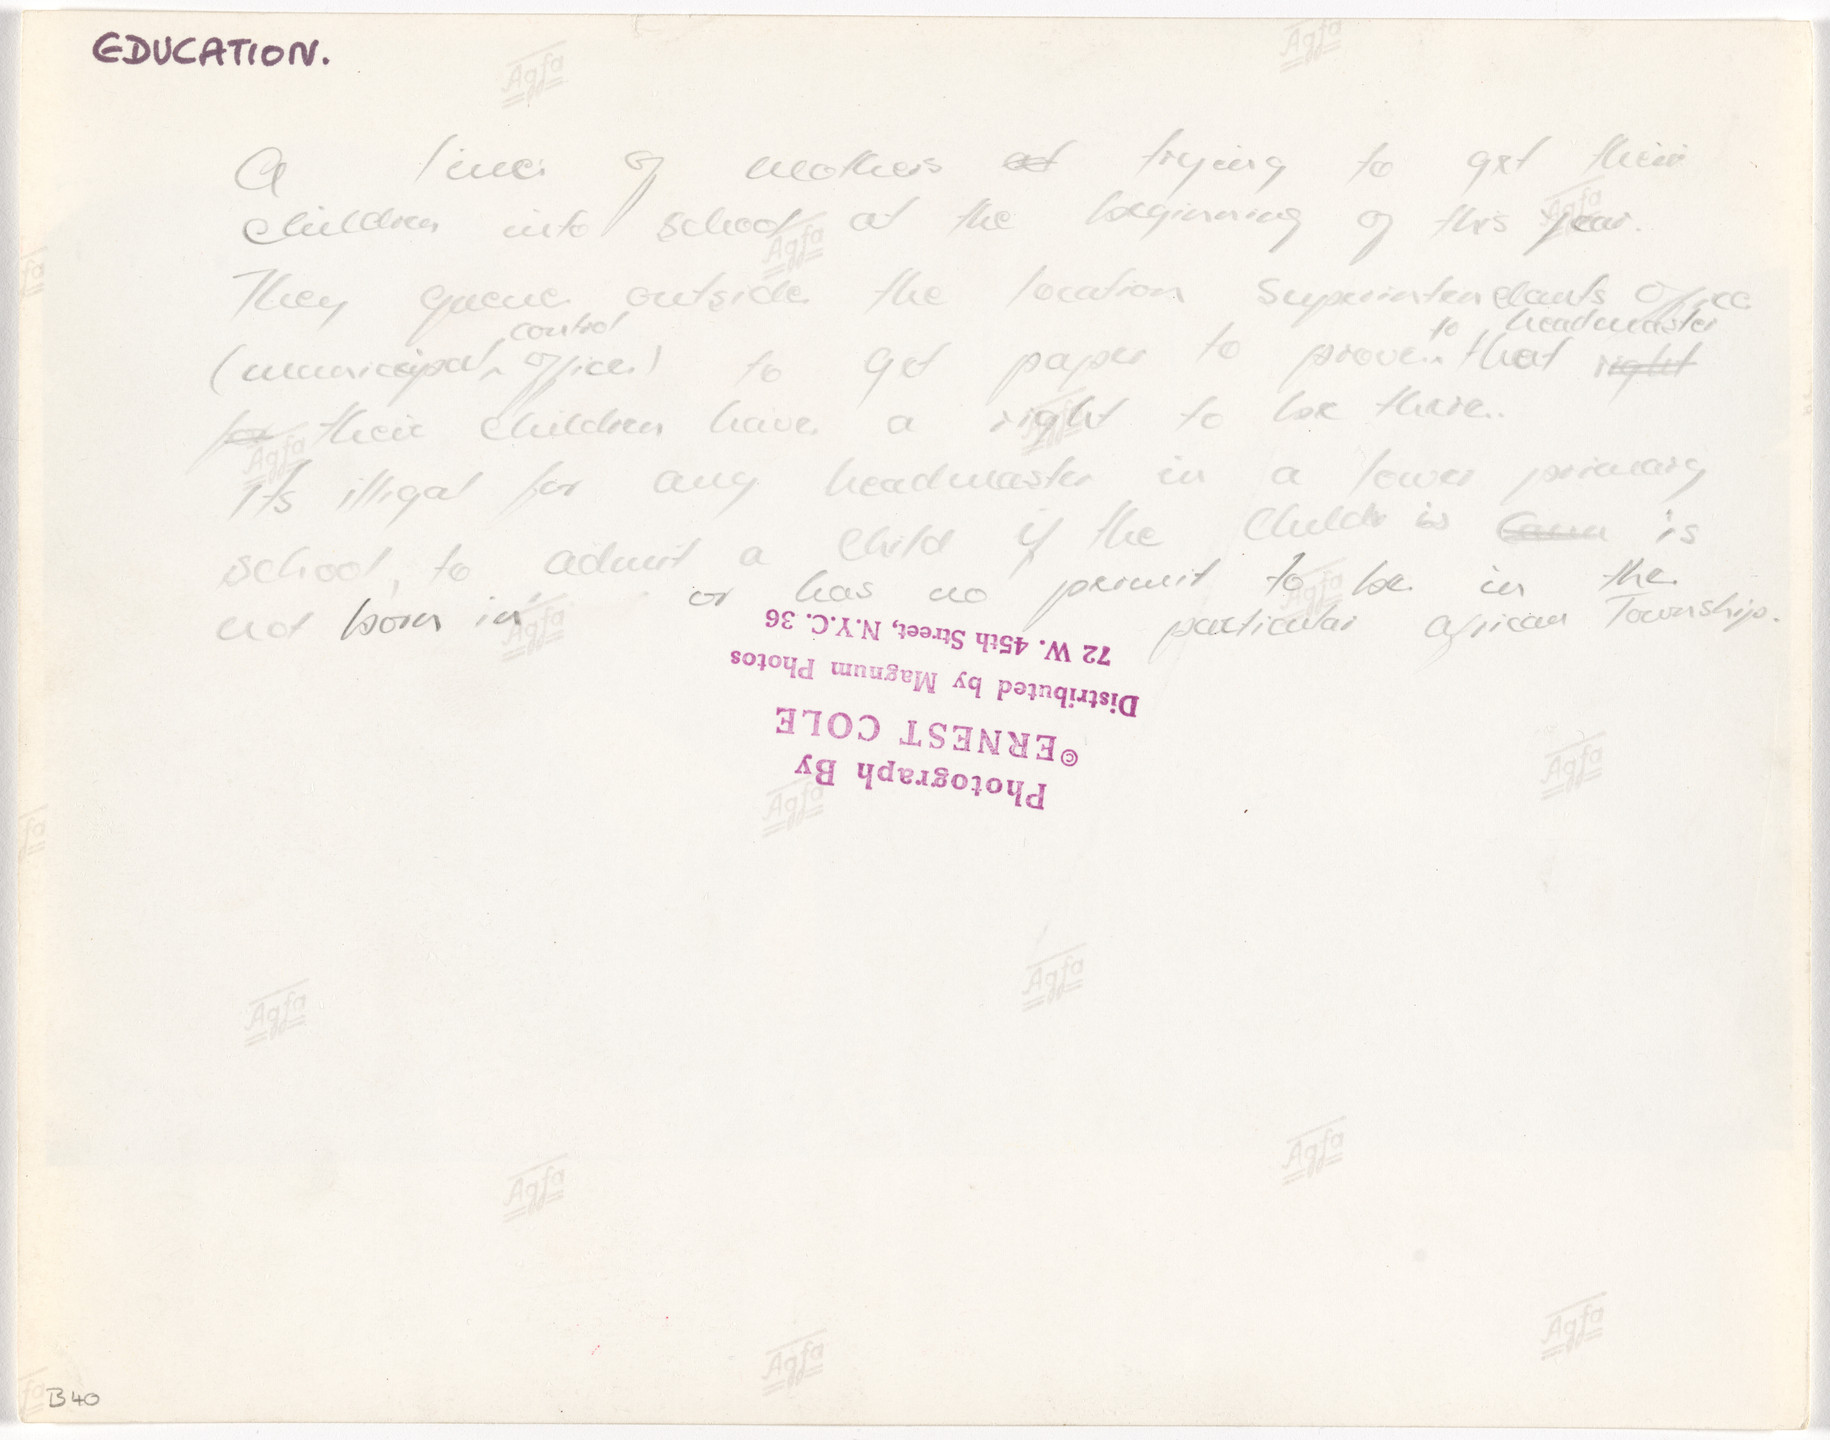 EDUCATION.
A line of mothers at trying to get their
children into school at the beginning of this year.
They queue outside the location Superintendants office
(municipal control office) to get paper to prove to headmaster that right
for their children have a right to be there.
Its illigal for any headmaster in a lower primary
school, to admit a child if the child is is
not born in or has no permit to be in the
particular african Township.
Photograph By
©ERNEST COLE
Distributed by Magnum Photos
72 W. 45th Street, N.Y.C. 36
B40
Agfa